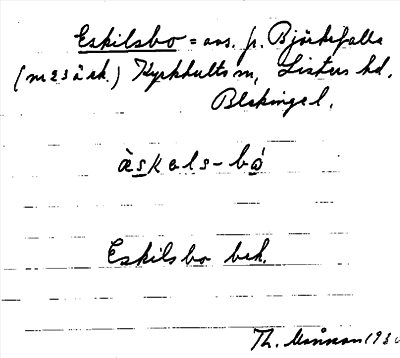 Eskilsbo = avs. fr. Björkefalla
(mes ä rk.) Kyrkhults sn, Listers hd,
Blekinge l.
àskals-bó
Eskilsbo bek.
Th. Månsson 193